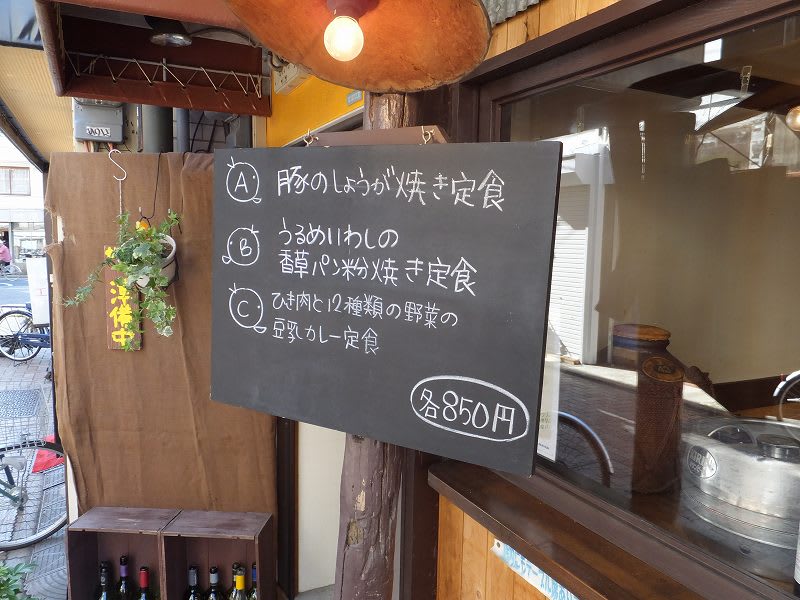 A 豚のしょうが焼き定食
B うるめいわしの
香草パン粉焼き定食
C ひき肉と12種類の野菜の
豆乳カレー定食
各850円
準備中